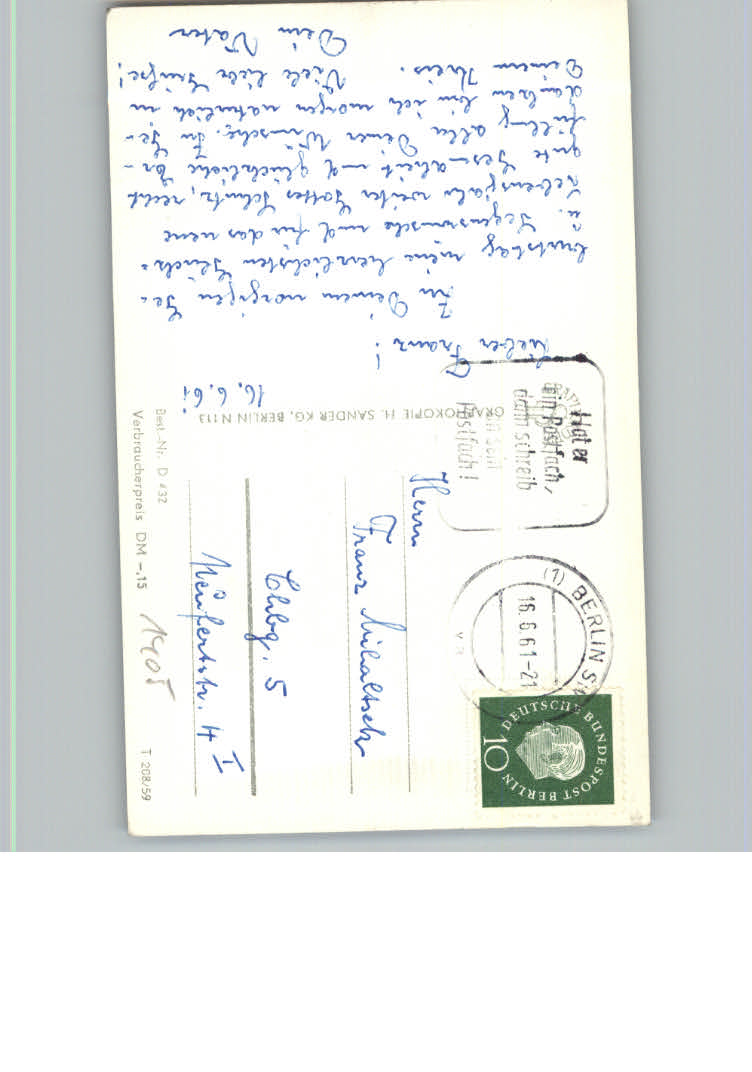 16.6.61
Lieber Franz!
Zu Deinem morgigen Ge-
burtstag meine herzlichsten Glück-
u. Segenswünsche und für das neue
Lebensjahr weiter Gottes Schutz, recht
gute Gesundheit und glückliche Er-
füllung aller Deiner Wünsche. Zu Ge-
danken bin ich morgen natürlich in
Deinem Kreis. Viele liebe Grüße!
Dein Vater
Herrn
Franz Mikaltsch
Chbg. 5
Neufertstr. 4 I
Hat er
ein Postfach,
dann schreib
an sein
Postfach!
(1) BERLIN
16.6.61-21
DEUTSCHE BUNDESPOST BERLIN
10
GRAPHOKOPIE H. SANDER KG. BERLIN N 113
Best.-Nr. D 432
Verbraucherpreis DM -,15
1405
T 208/59